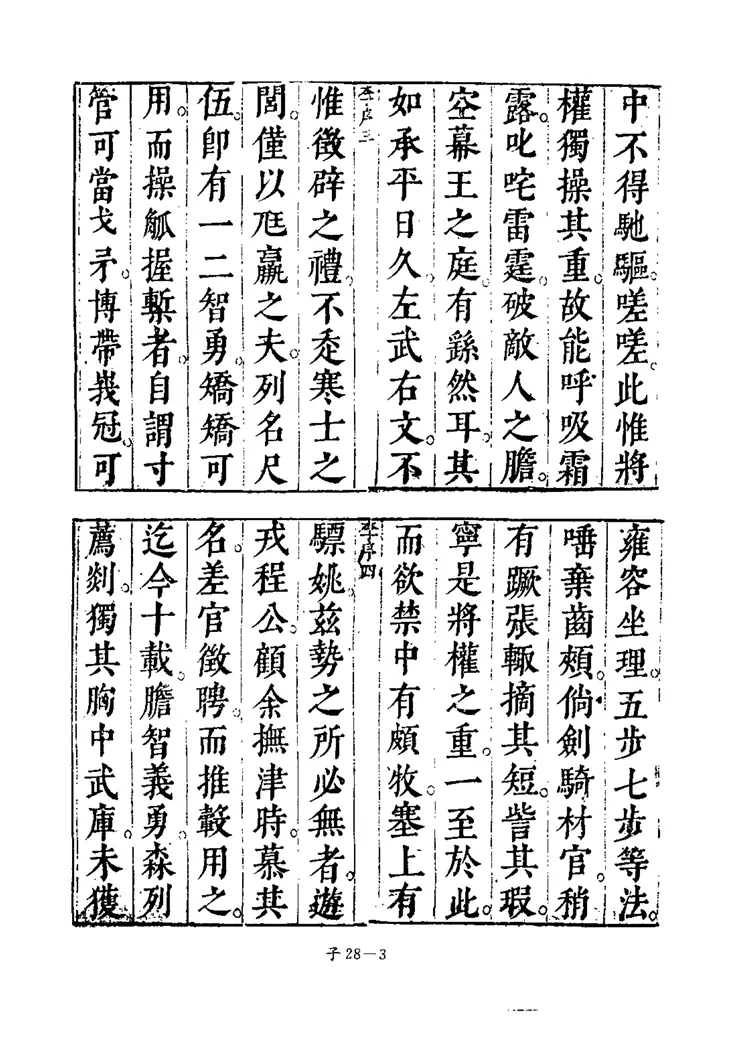 中不得馳驅。嗟嗟。此惟將
權獨操其重。故能呼吸霜
露。叱咤雷霆。破敵人之膽。
空幕王之庭。有繇然耳。其
如承平日久。左武右文。不
李序三
惟徵辟之禮。不及寒士之
閭。僅以尫羸之夫。列名尺
伍。卽有一二智勇。矯矯可
用。而操觚握槧者。自謂寸
管可當戈矛。博帶峩冠。可
雍容坐理。五步七步等法。
唾棄齒頰。倘劍騎材官。稍
有蹶張。輙摘其短。訾其瑕。
寧是將權之重。一至於此。
而欲禁中有頗牧。塞上有
李序四
驃姚。茲勢之所必無者。遊
戎程公。顧余撫津時。慕其
名。差官徵聘。而推轂用之。
迄今十載。膽智義勇。森列
薦剡。獨其胸中武庫。未獲
子28—3